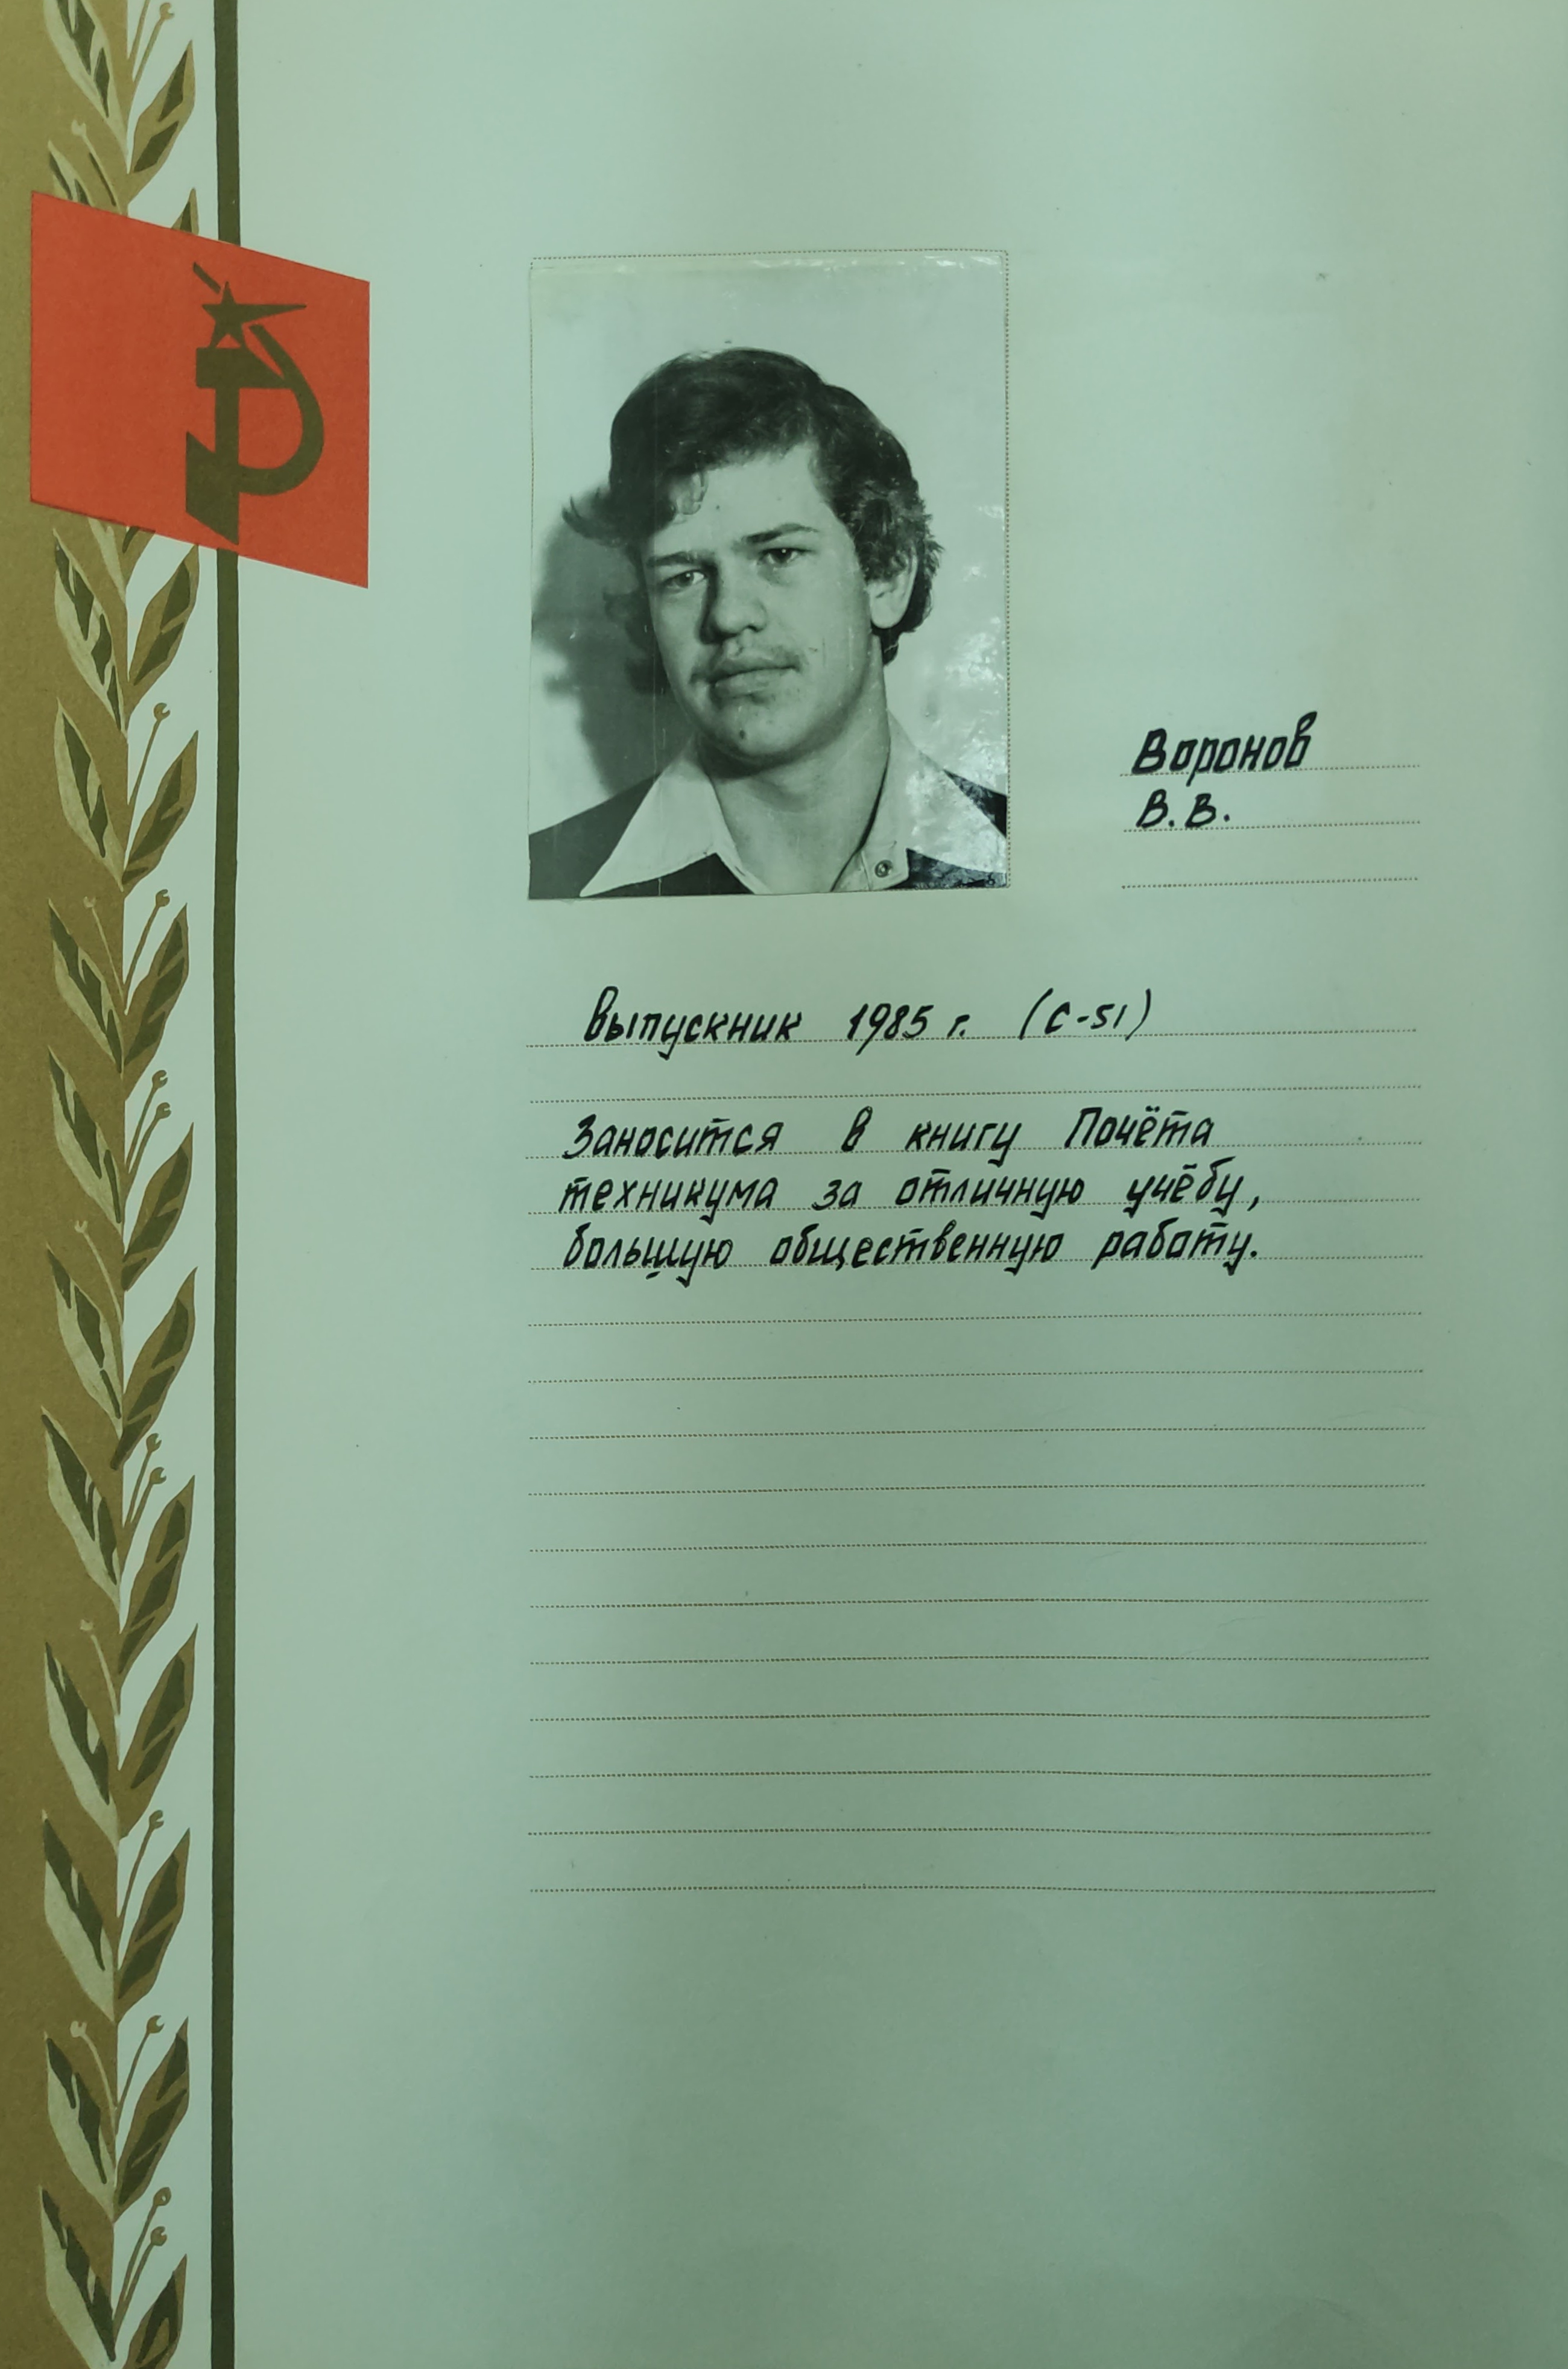 Воронов
В.В.
Выпускник 1985 г. (С-51)
Заносится в книгу Почёта
техникума за отличную учёбу,
большую общественную работу.